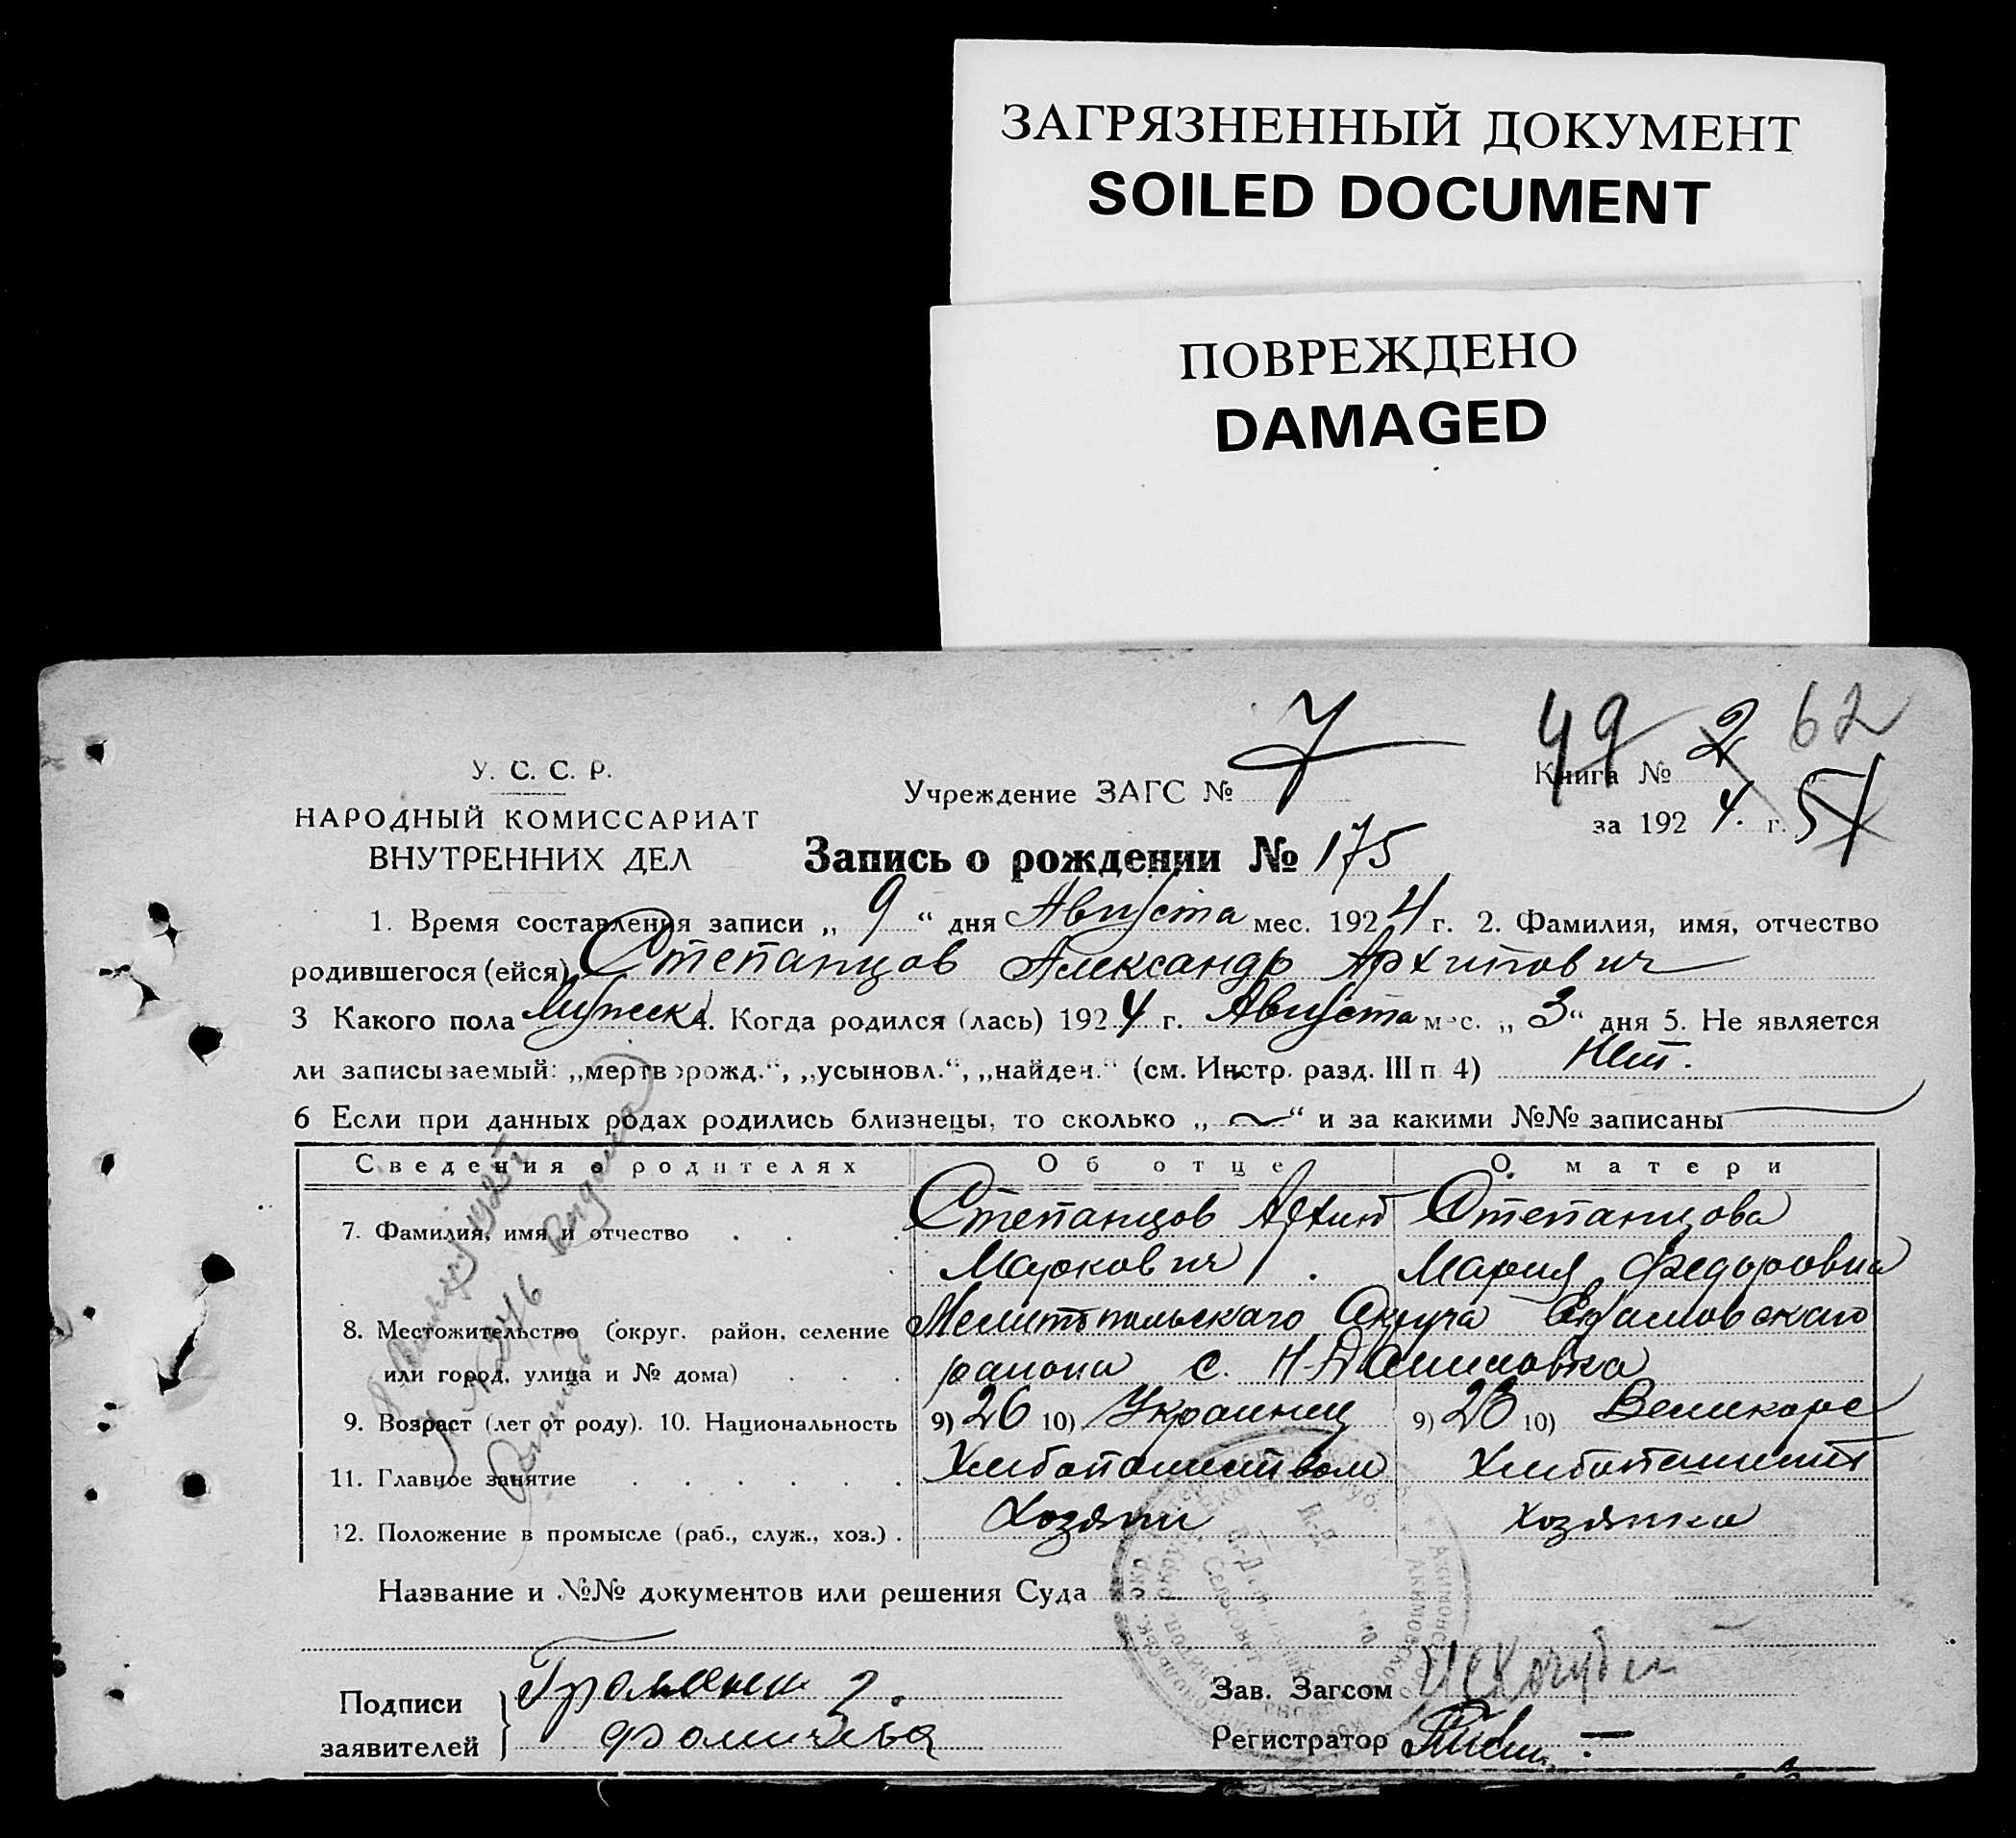 ЗАГРЯЗНЕННЫЙ ДОКУМЕНТ
SOILED DOCUMENT
ПОВРЕЖДЕНО
DAMAGED
49 62
У. С. С. Р.
НАРОДНЫЙ КОМИССАРИАТ
ВНУТРЕННИХ ДЕЛ
Учреждение ЗАГС № 7
Книга № 2
за 1924. г. 51
Запись о рождении № 175
1. Время составления записи „ 9 “ дня Августа мес. 1924 г. 2. Фамилия, имя, отчество
родившегося (ейся) Степанцов Александр Архипович
3 Какого пола мужск. 4. Когда родился (лась) 1924 г. Августа мес. „ 3 “ дня 5. Не является
ли записываемый: „мертворожд.“, „усыновл.“, „найден.“ (см. Инстр. разд. III п 4) Нет.
6 Если при данных родах родились близнецы, то сколько „ — “ и за какими №№ записаны —
Сведения о родителях Об отце О матери
7. Фамилия, имя и отчество Степанцов Архип Степанцова
Маркович Мария Федоровна
8. Местожительство (округ. район, селение Мелитопольскаго Округа
или город, улица и № дома) района с. Н-Даниловка
9. Возраст (лет от роду). 10. Национальность 9) 26 10) Украинец 9) 23 10) Великорос
11. Главное занятие Хлебопашеством Хлебопашеств
12. Положение в промысле (раб., служ., хоз.) Хозяин хозяйка
Название и №№ документов или решения Суда
Подписи
заявителей
Зав. Загсом
Регистратор